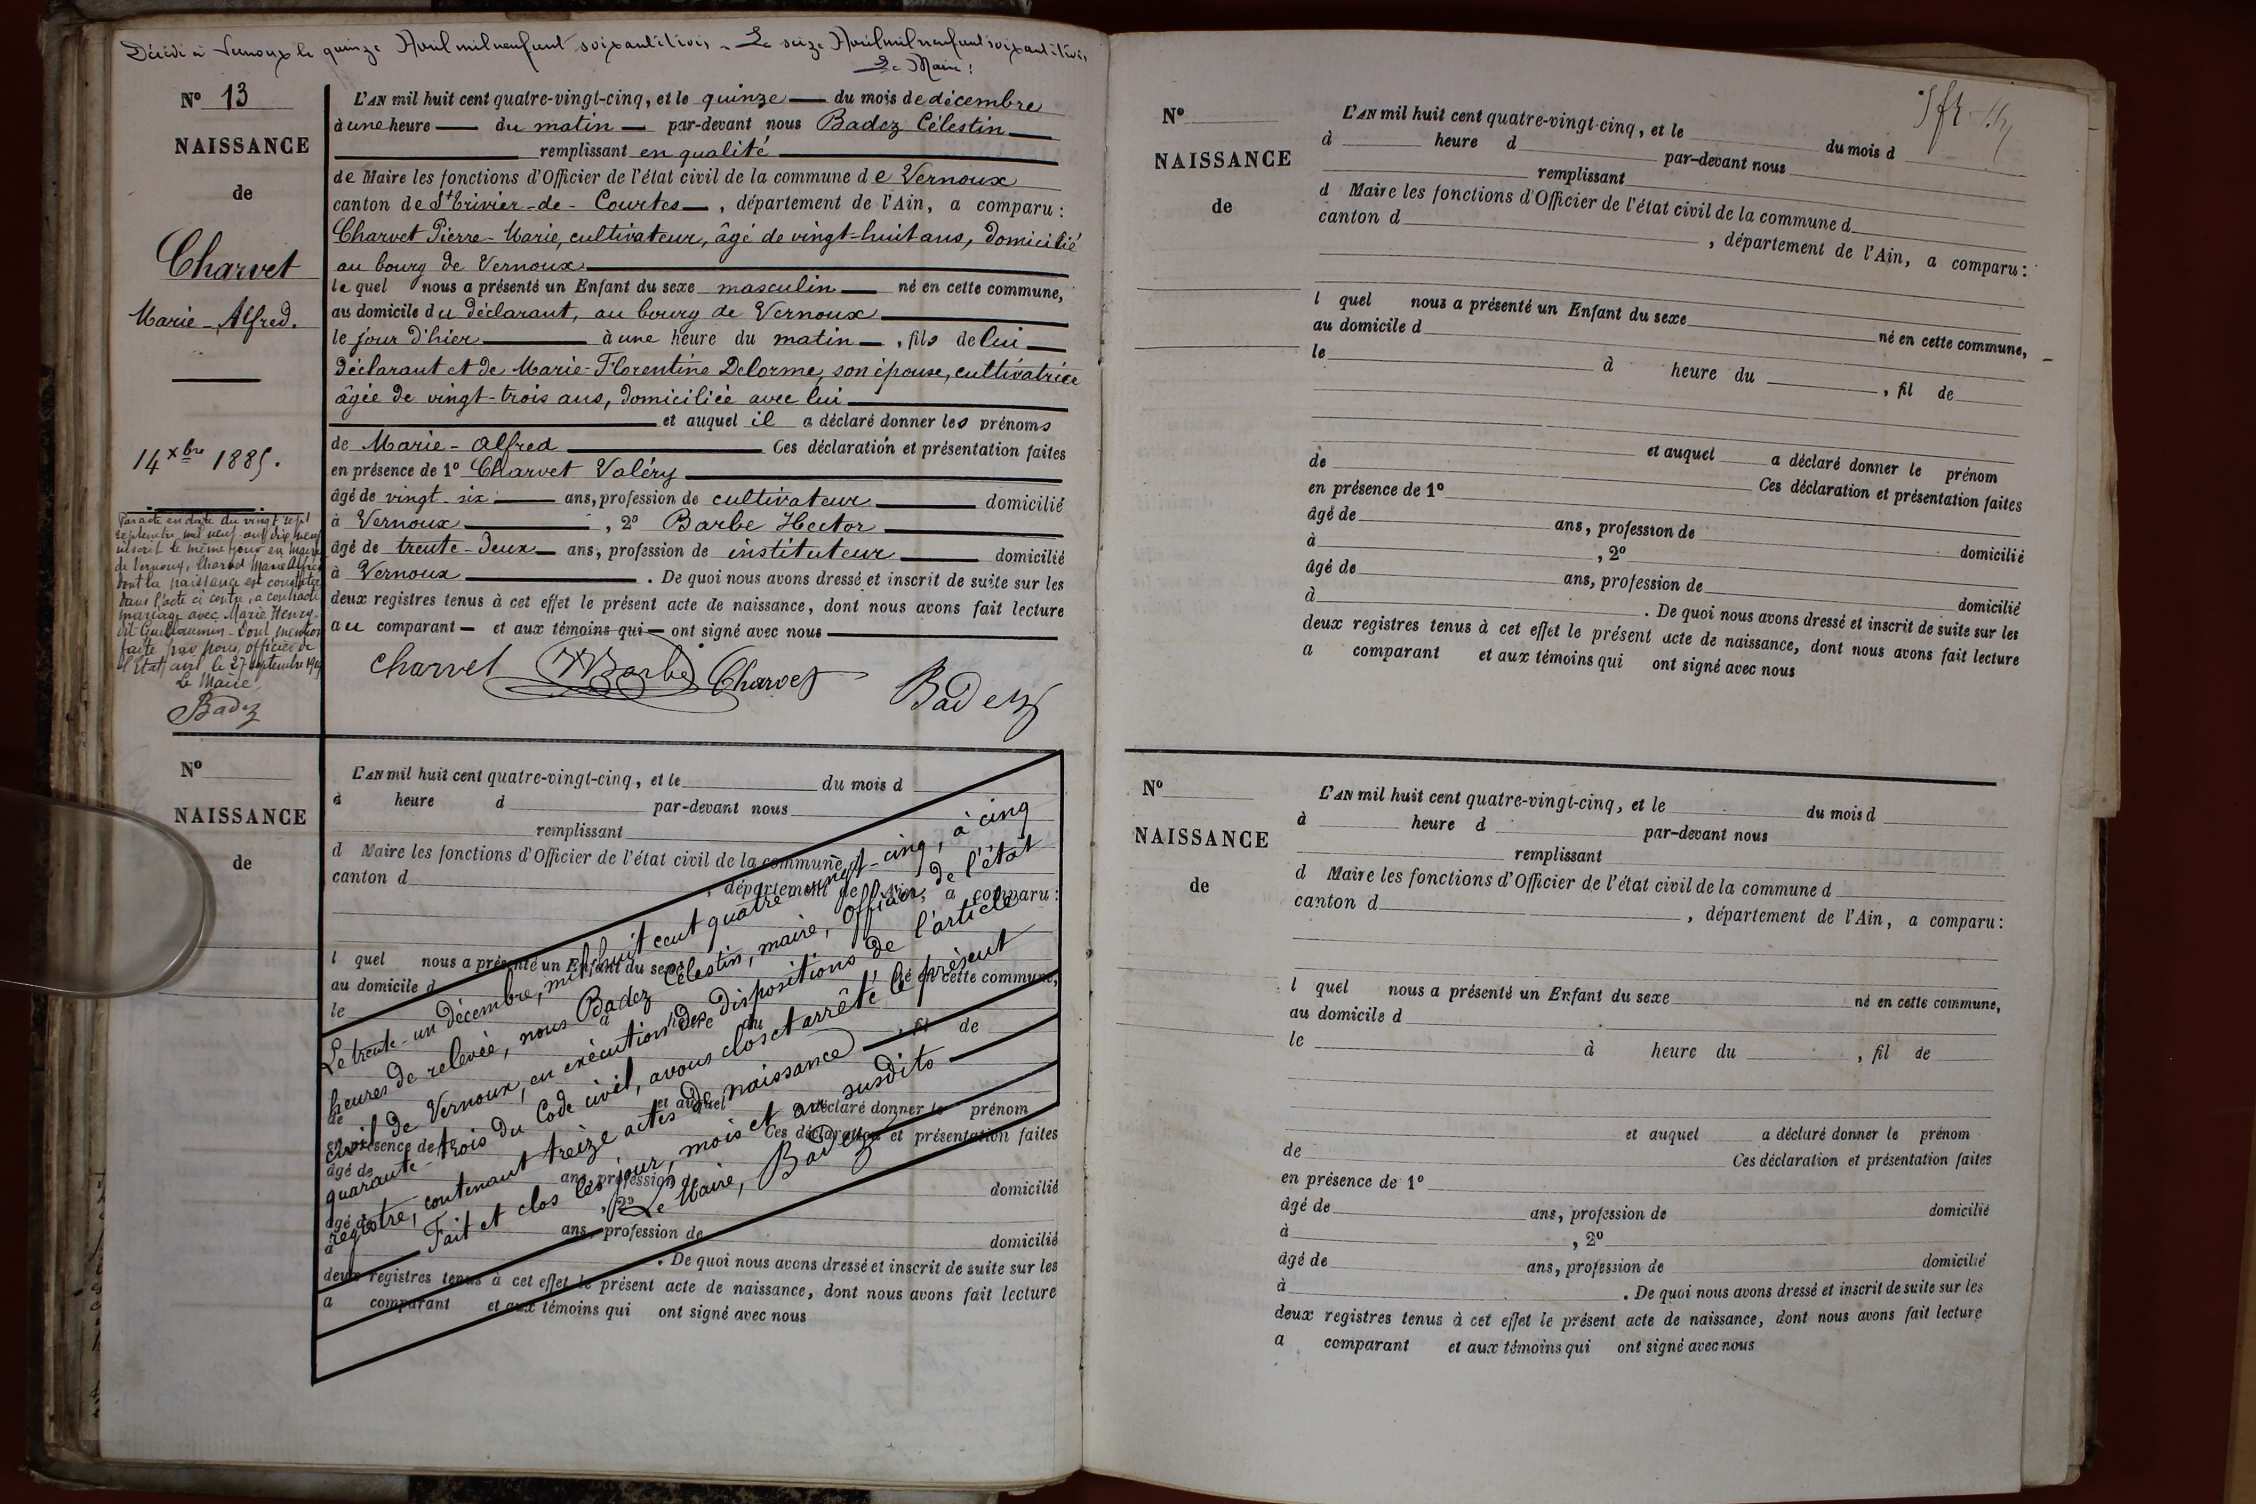 Décédé à Vernoux le quinze Avril mil neuf cent soixante trois. Le seize Avril mil neuf cent soixante trois,
Le Maire :
N° 13
NAISSANCE
de
Charvet
Marie-Alfred.
14 xbre 1885.
Par acte en date du vingt sept
septembre mil neuf cent dix neuf
inscrit le même jour en mairie
de Vernoux, Charvet Marie Alfred
dont la naissance est constatée
dans l'acte ci contre, a contracté
mariage avec Marie Henry
dit Guillaumin - Dont mention
faite par nous officier de
l'Etat civil le 27 septembre
Le Maire,
Badez
L'AN mil huit cent quatre-vingt-cinq, et le quinze du mois de décembre
à une heure du matin par-devant nous Badez Célestin
remplissant en qualité
de Maire les fonctions d'Officier de l'état civil de la commune de Vernoux
canton de St Trivier-de-Courtes, département de l'Ain, a comparu :
Charvet Pierre-Marie, cultivateur, âgé de vingt-huit ans, domicilié
au bourg de Vernoux
lequel nous a présenté un Enfant du sexe masculin né en cette commune,
au domicile du déclarant, au bourg de Vernoux
le jour d'hier à une heure du matin, fils de lui
déclarant et de Marie-Florentine Delorme, son épouse, cultivatrice
âgée de vingt-trois ans, domiciliée avec lui
et auquel il a déclaré donner les prénoms
de Marie-Alfred Ces déclaration et présentation faites
en présence de 1° Charvet Valéry
âgé de vingt-six ans, profession de cultivateur domicilié
à Vernoux, 2° Barbe Hector
âgé de trente-deux ans, profession de instituteur domicilié
à Vernoux. De quoi nous avons dressé et inscrit de suite sur les
deux registres tenus à cet effet le présent acte de naissance, dont nous avons fait lecture
au comparant et aux témoins qui ont signé avec nous
Charvet HBarbe Charvet Badez
N°
NAISSANCE
de
L'AN mil huit cent quatre-vingt-cinq, et le du mois d
à heure d par-devant nous
remplissant
d Maire les fonctions d'Officier de l'état civil de la commune d
canton d , département de l'Ain, a comparu :
l quel nous a présenté un Enfant du sexe né en cette commune,
au domicile d
le à heure du , fil de
et auquel a déclaré donner le prénom
de Ces déclaration et présentation faites
en présence de 1°
âgé de ans, profession de domicilié
à , 2°
âgé de ans, profession de domicilié
à . De quoi nous avons dressé et inscrit de suite sur les
deux registres tenus à cet effet le présent acte de naissance, dont nous avons fait lecture
a comparant et aux témoins qui ont signé avec nous
Le trente-un décembre, mil huit cent quatre vingt-cinq, à cinq
heures de relevée, nous Badez Célestin, maire, officier de l'état
civil de Vernoux, en exécution des dispositions de l'article
quarante-trois du Code civil, avons clos et arrêté le présent
registre, contenant treize actes de naissance
Fait et clos les jour, mois et an susdits
Le Maire, Badez
N°
NAISSANCE
de
L'AN mil huit cent quatre-vingt-cinq, et le du mois d
à heure d par-devant nous
remplissant
d Maire les fonctions d'Officier de l'état civil de la commune d
canton d , département de l'Ain, a comparu :
l quel nous a présenté un Enfant du sexe né en cette commune,
au domicile d
le à heure du , fil de
et auquel a déclaré donner le prénom
de Ces déclaration et présentation faites
en présence de 1°
âgé de ans, profession de domicilié
à , 2°
âgé de ans, profession de domicilié
à . De quoi nous avons dressé et inscrit de suite sur les
deux registres tenus à cet effet le présent acte de naissance, dont nous avons fait lecture
a comparant et aux témoins qui ont signé avec nous
N°
NAISSANCE
de
L'AN mil huit cent quatre-vingt-cinq, et le du mois d
à heure d par-devant nous
remplissant
d Maire les fonctions d'Officier de l'état civil de la commune d
canton d , département de l'Ain, a comparu :
l quel nous a présenté un Enfant du sexe né en cette commune,
au domicile d
le à heure du , fil de
et auquel a déclaré donner le prénom
de Ces déclaration et présentation faites
en présence de 1°
âgé de ans, profession de domicilié
à , 2°
âgé de ans, profession de domicilié
à . De quoi nous avons dressé et inscrit de suite sur les
deux registres tenus à cet effet le présent acte de naissance, dont nous avons fait lecture
a comparant et aux témoins qui ont signé avec nous